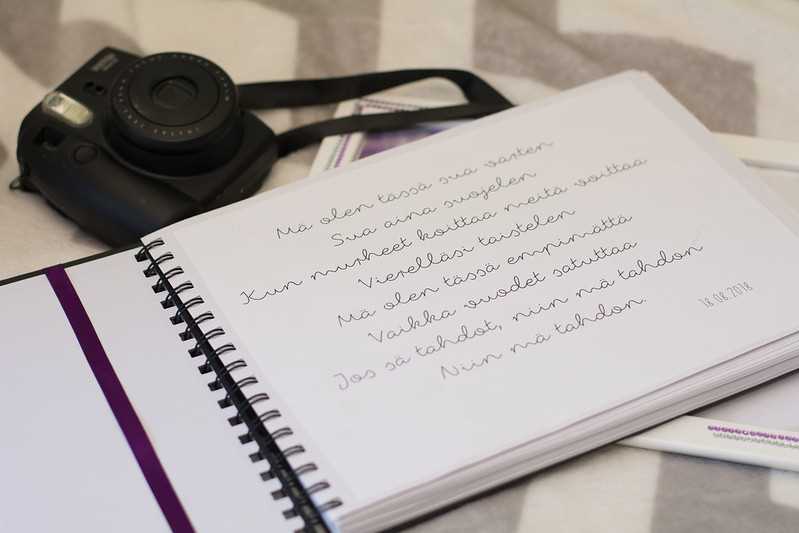 Mä olen tässä sua varten
Sua aina suojelen
Kun murheet koittaa meitä voittaa
Vierelläsi taistelen
Mä olen tässä empimättä
Vaikka vuodet satuttaa
Jos sä tahdot, niin mä tahdon
Niin mä tahdon.
18.08.2018